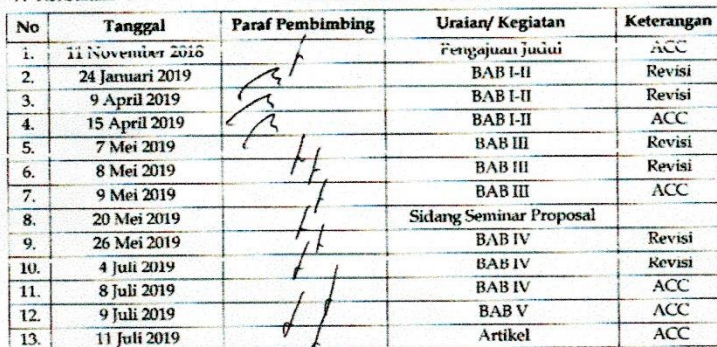 No Tanggal Paraf Pembimbing Uraian/ Kegiatan Keterangan
1. 11 November 2018 Pengajuan Judul ACC
2. 24 Januari 2019 BAB I-II Revisi
3. 9 April 2019 BAB I-II Revisi
4. 15 April 2019 BAB I-II ACC
5. 7 Mei 2019 BAB III Revisi
6. 8 Mei 2019 BAB III Revisi
7. 9 Mei 2019 BAB III ACC
8. 20 Mei 2019 Sidang Seminar Proposal
9. 26 Mei 2019 BAB IV Revisi
10. 4 Juli 2019 BAB IV Revisi
11. 8 Juli 2019 BAB IV ACC
12. 9 Juli 2019 BAB V ACC
13. 11 Juli 2019 Artikel ACC